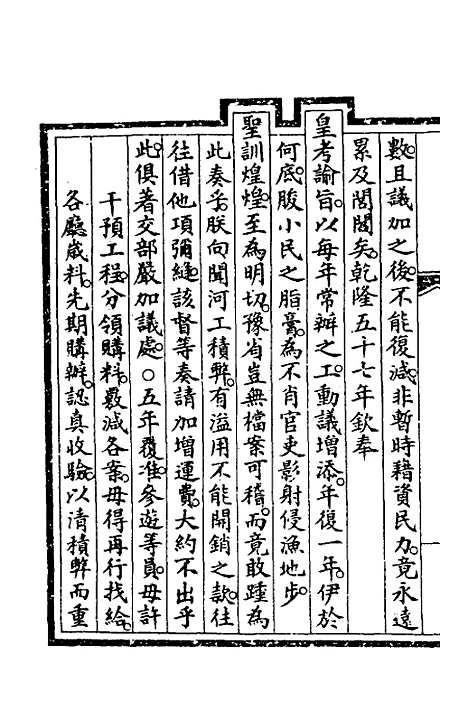 數。且議加之後。不能復減。非暫時藉資民力。竟永遠
累及閭閻矣。乾隆五十七年欽奉
皇考諭旨。以每年常辦之工。動議增添。年復一年。伊於
何底。朘小民之脂膏。為不肖官吏影射侵漁地步。
聖訓煌煌。至為明切。豫省豈無檔案可稽。而竟敢踵為
此奏乎。朕向聞河工積弊。有溢用不能開銷之款。往
往借他項彌縫。該督等奏請加增運費。大約不出乎
此。俱著交部嚴加議處。○五年覆准。參遊等員。毋許
干預工程。分領購料。覈減各案。毋得再行找給。
各廳歲料。先期購辦。認真收驗。以清積弊而重